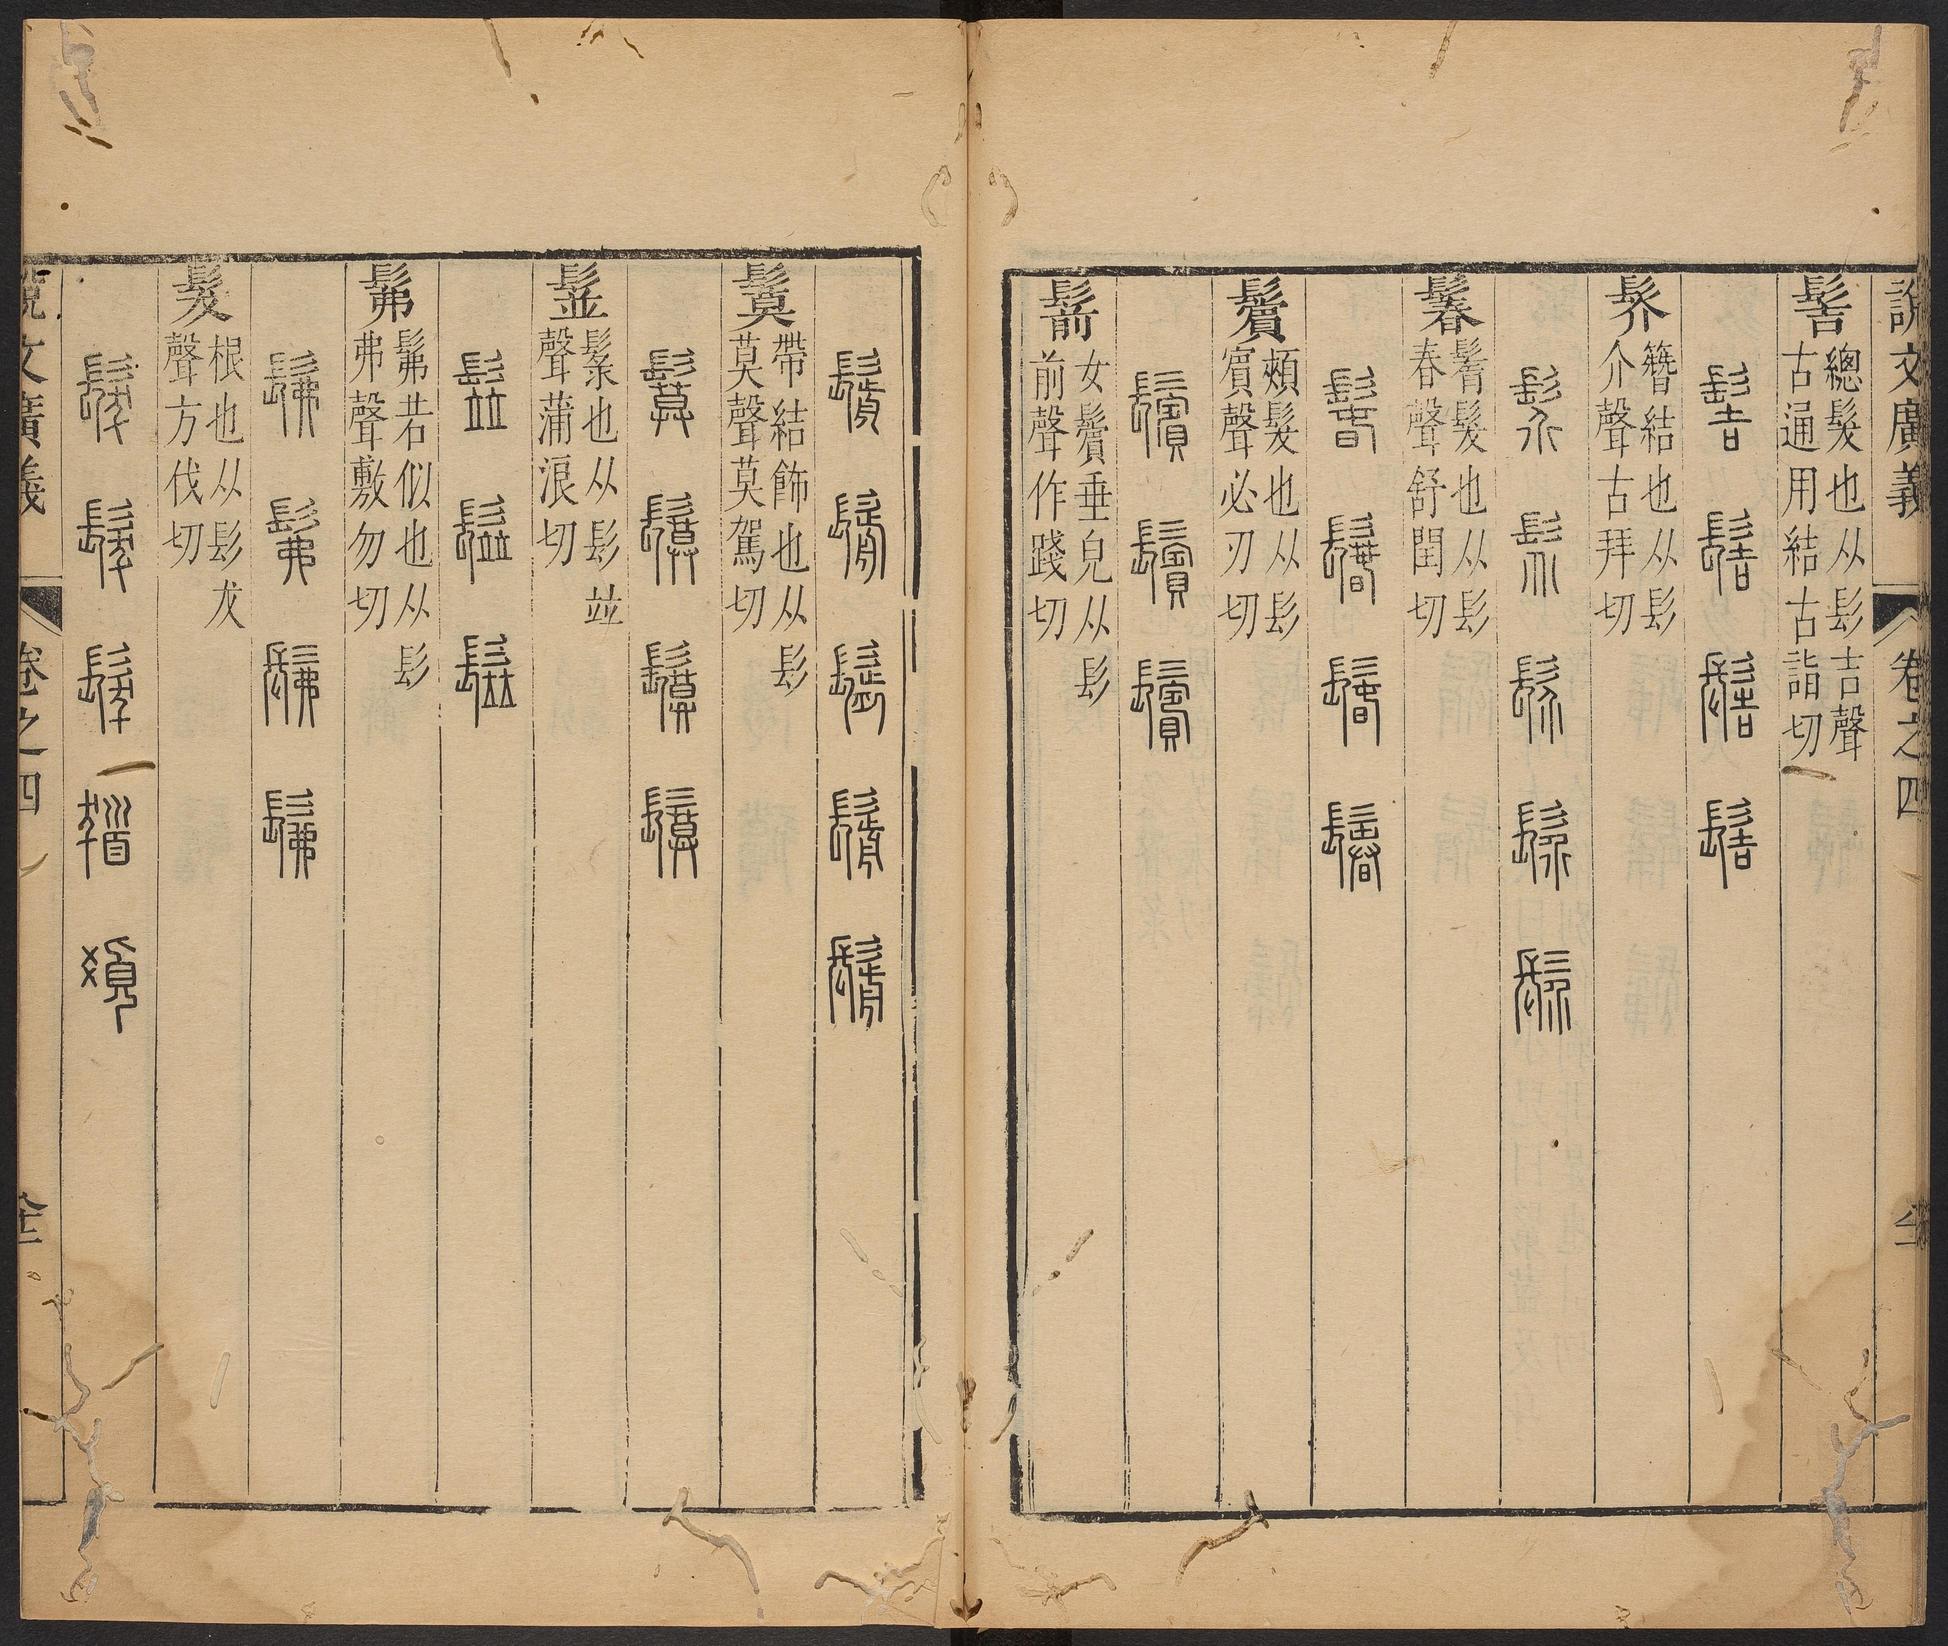 說文廣義 卷之四
髻 總髮也从髟吉聲
古通用結古詣切
髻 髻 髻 髻
髺 簪結也从髟
介聲古拜切
鬠 髟 髟 髟 髟
鬊 鬌髮也从髟
春聲舒閏切
鬊 鬊 鬊 鬊
鬢 頰髮也从髟
賓聲必刃切
鬢 鬢 鬢
鬋 女鬢垂皃从髟
前聲作踐切
鬋 鬋 鬋 鬋 鬋
帶結飾也从髟
莫聲莫駕切
鬕 鬕 鬕 鬕
鬃也从髟並
聲蒲浪切
髴 髴若似也从髟
弗聲敷勿切
髴 髴 髴 髴
髮 根也从髟犮
聲方伐切
髮 髮 髮
說文廣義 卷之四